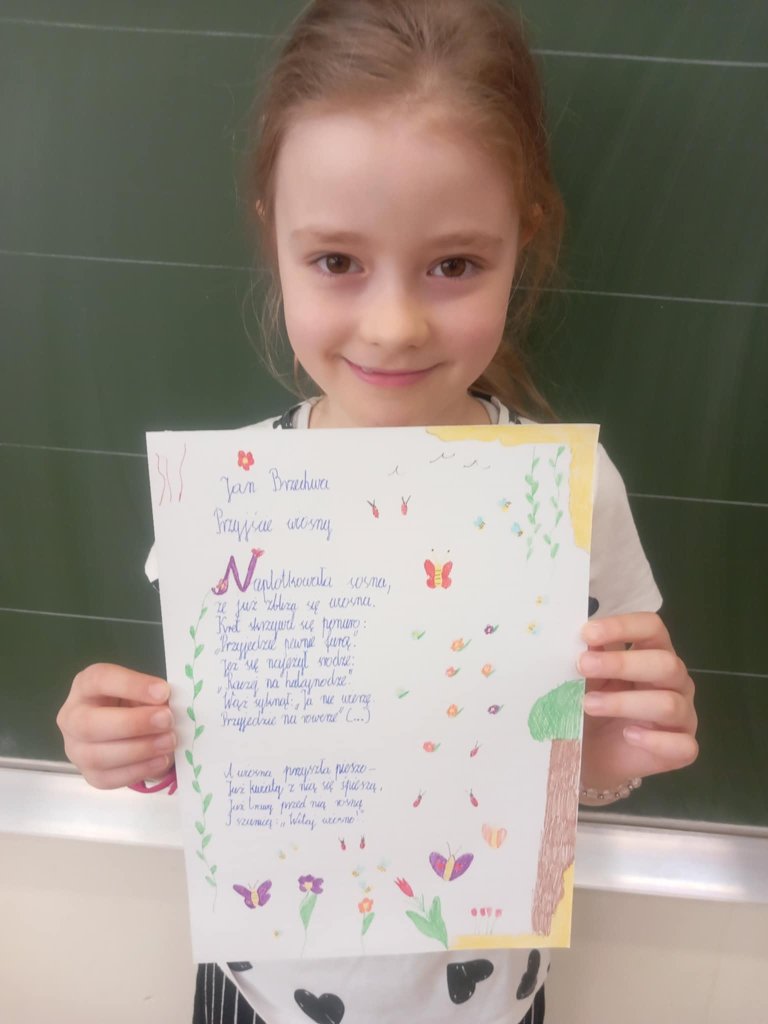 Jan Brzechwa
Przyjście wiosny
Naplotkowała sosna,
że już zbliża się wiosna.
Kret skrzywił się ponuro:
„Przyjedzie pewnie furą".
Jeż się najeżył srodze:
„Raczej na hulajnodze".
Wąż syknął: „Ja nie wierzę.
Przyjedzie na rowerze" (...)
A wiosna przyszła pieszo –
Już kwiaty z nią się spieszą,
Już trawy przed nią rosną
I szumią: „Witaj wiosno!"